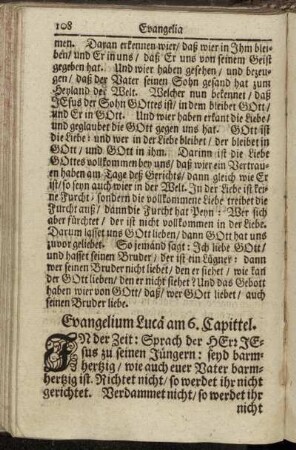 108 Evangelia
men. Daran erkennen wier/ daß wier in Ihm blei-
ben/ und Er in uns/ daß Er uns von seinem Geist
gegeben hat. Und wier haben gesehen/ und bezeu-
gen/ daß der Vater seinen Sohn gesand hat zum
Heyland der Welt. Welcher nun bekennet/ daß
JEsus der Sohn GOttes ist/ in dem bleibet GOtt/
und Er in GOtt. Und wier haben erkant die Liebe/
und geglaubet die GOtt gegen uns hat. GOtt ist
die Liebe: und wer in der Liebe bleibet/ der bleibet
in GOtt/ und GOtt in ihm. Darinn ist die Liebe
GOttes vollkommen bey uns/ daß wier ein Vertrau-
en haben am Tage deß Gerichts/ dann gleich wie Er
ist/ so seyn auch wier in der Welt. In der Liebe ist kei-
ne Furcht/ sondern die vollkommene Liebe treibet die
Furcht auß/ dann die Furcht hat Peyn: Wer sich
aber fürchtet/ der ist nicht vollkommen in der Liebe.
Darum lasset uns GOtt lieben/ dann GOtt hat uns
zuvor geliebet. So jemand sagt: Ich liebe GOtt/
und hasset seinen Bruder/ der ist ein Lügner: dann
wer seinen Bruder nicht liebet/ den er siehet/ wie kan
der GOtt lieben/ den er nicht siehet? Und das Gebott
haben wier von GOtt/ daß/ wer GOtt liebet/ auch
seinen Bruder liebe.
Evangelium Lucä am 6. Capittel.
IN der Zeit: Sprach der HErr JE-
sus zu seinen Jüngern: seyd barm-
hertzig/ wie auch euer Vater barm-
hertzig ist. Richtet nicht/ so werdet ihr nicht
gerichtet. Verdammet nicht/ so werdet ihr
nicht